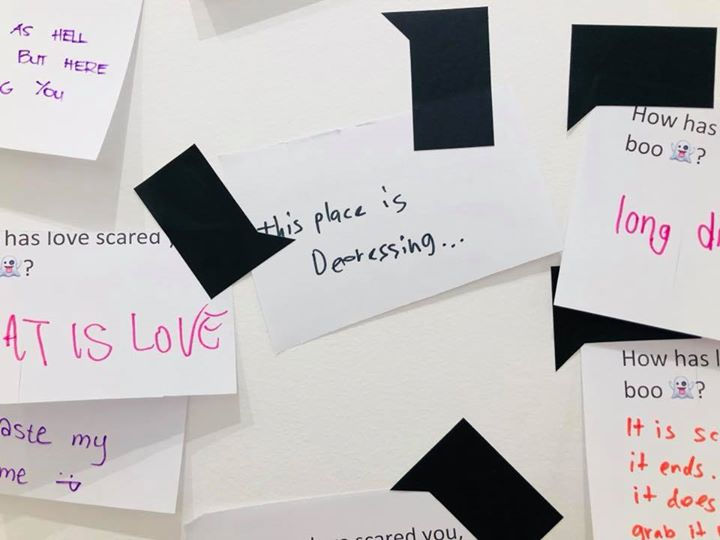 AS HELL
BUT HERE
G You
How has
boo 👻?
long
this place is
Depressing...
has love scared
👻?
AT IS LOVE
How has
boo 👻?
It is
it ends.
it does
grab it
aste my
me
scared you,